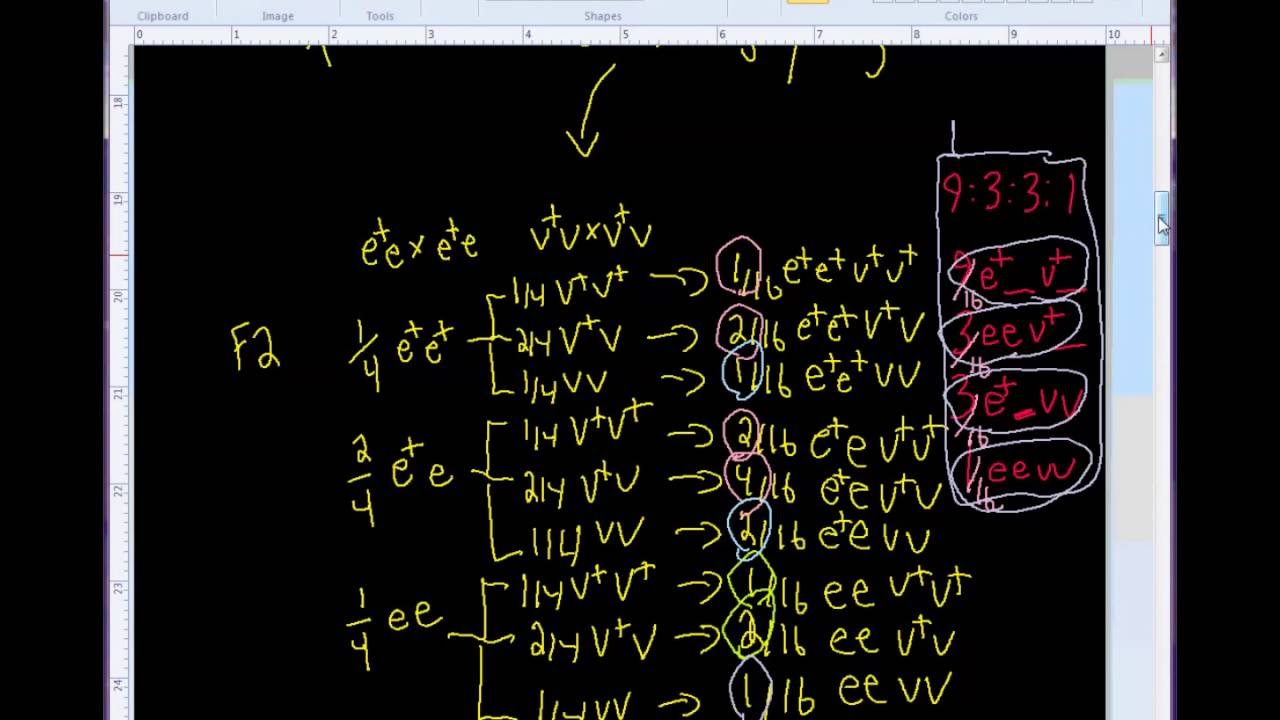 Clipboard Image Tools Shapes Colors
0 1 2 3 4 5 6 7 8 9 10
18
19
20
21
22
23
24
e⁺e × e⁺e v⁺v × v⁺v
F2
1/4 e⁺e⁺
1/4 v⁺v⁺ → 1/16 e⁺e⁺ v⁺v⁺
2/4 v⁺v → 2/16 e⁺e⁺ v⁺v
1/4 vv → 1/16 e⁺e⁺ vv
2/4 e⁺e
1/4 v⁺v⁺ → 2/16 e⁺e v⁺v⁺
2/4 v⁺v → 4/16 e⁺e v⁺v
1/4 vv → 2/16 e⁺e vv
1/4 ee
1/4 v⁺v⁺ → 1/16 ee v⁺v⁺
2/4 v⁺v → 2/16 ee v⁺v
1/4 vv → 1/16 ee vv
9:3:3:1
9/16 e⁺_ v⁺_
3/16 ee v⁺_
3/16 e⁺_ vv
1/16 ee vv